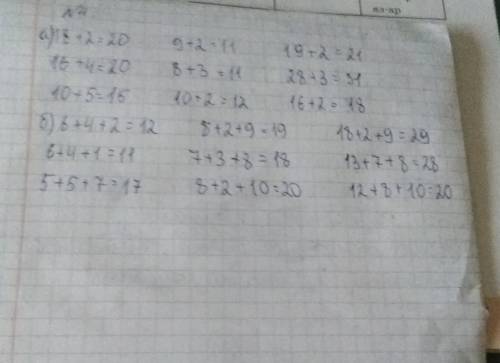 №4
а) 18+2=20 9+2=11 19+2=21
16+4=20 8+3=11 28+3=31
10+5=15 10+2=12 16+2=18
б) 6+4+2=12 8+2+9=19 18+2+9=29
6+4+1=11 7+3+8=18 13+7+8=28
5+5+7=17 8+2+10=20 12+8+10=20